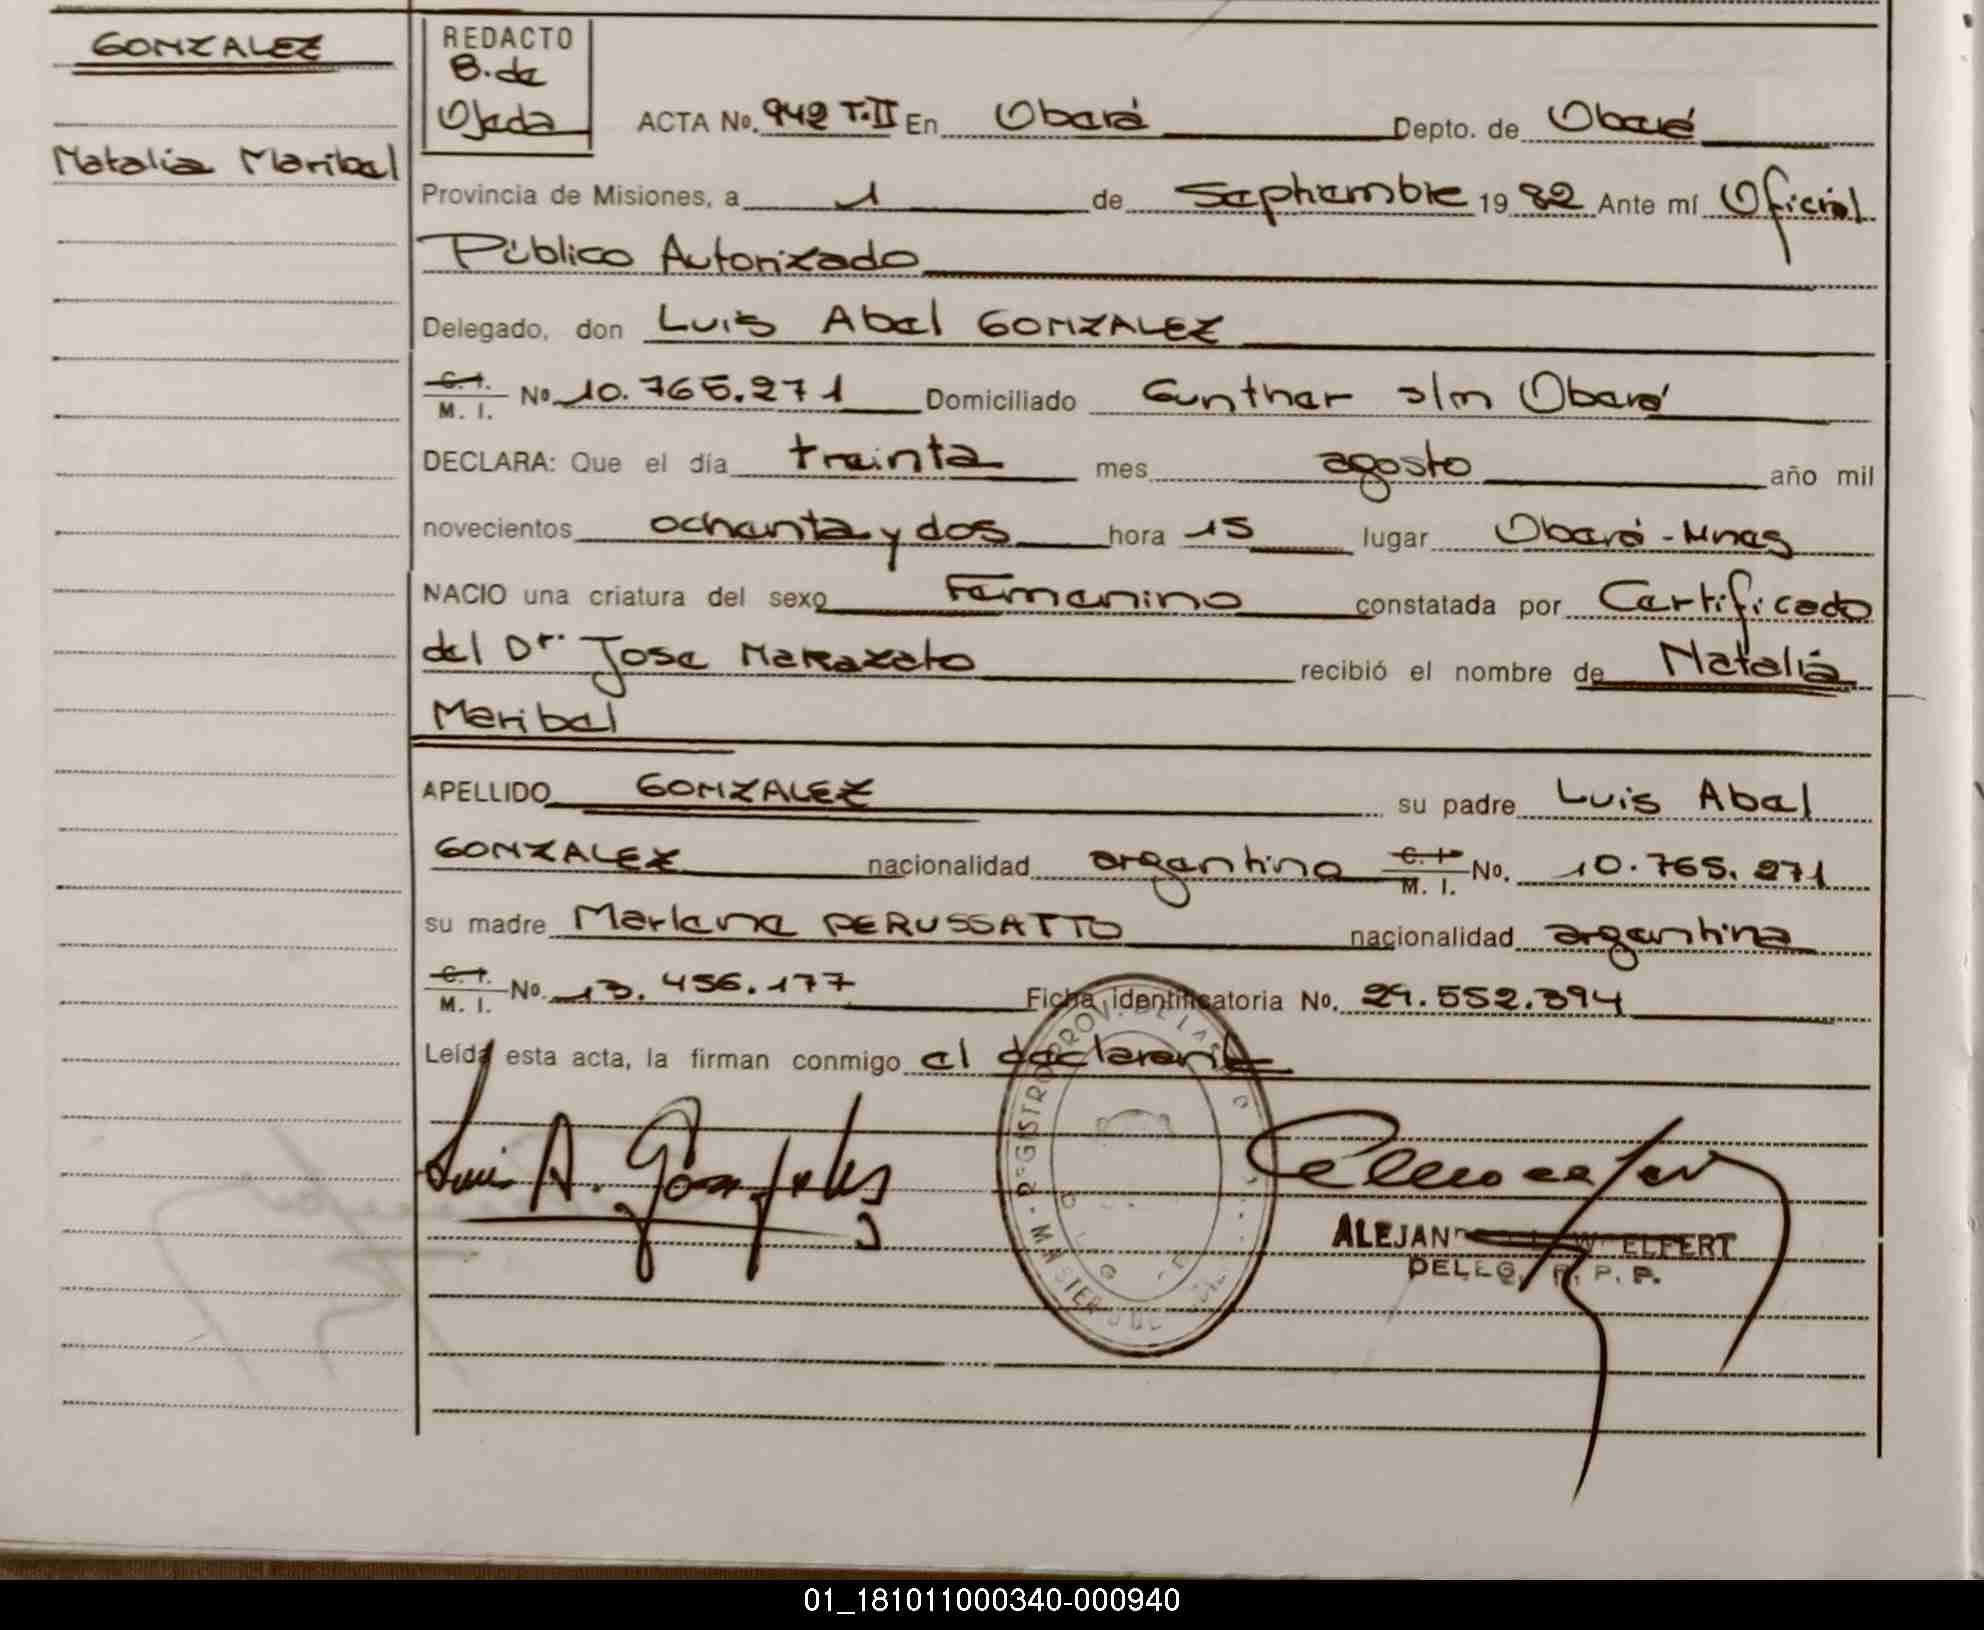 GONZALEZ
Natalia Maribel
REDACTO
B. de
Ojeda
ACTA No. 942 T.II En Oberá Depto. de Oberá
Provincia de Misiones, a 1 de Septiembre 19 82 Ante mí Oficial
Público Autorizado
Delegado, don Luis Abel GONZALEZ
C. I.
M. I. No 10.765.271 Domiciliado Gunther s/n Oberá
DECLARA: Que el día treinta mes agosto año mil
novecientos ochenta y dos hora 15 lugar Oberá - Mnes
NACIO una criatura del sexo Femenino constatada por Certificado
del Dr. Jose recibió el nombre de Natalia
Maribel
APELLIDO GONZALEZ su padre Luis Abel
GONZALEZ nacionalidad argentino C. I. M. I. No. 10.765.271
su madre Marlene PERUSSATTO nacionalidad argentina
C. I.
M. I. No. 13.456.177 Ficha identificatoria No. 29.552.394
Leída esta acta, la firman conmigo el declarante
Luis A. Gonzalez
REGISTRO PROV. DE LAS
ALEJAN
DELEG. R. P. P.
01_181011000340-000940